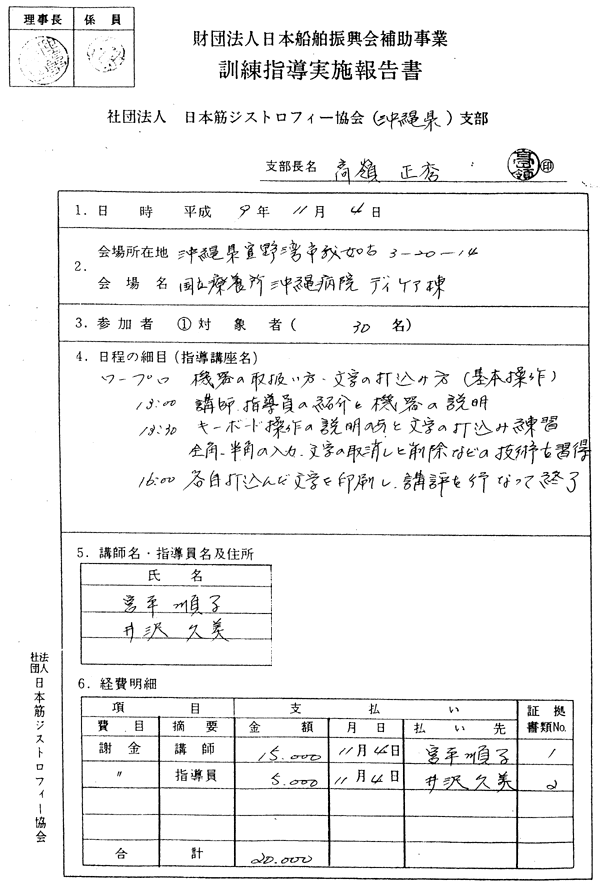 理事長 係員
財団法人日本船舶振興会補助事業
訓練指導実施報告書
社団法人 日本筋ジストロフィー協会(沖縄県)支部
支部長名 高嶺 正秀 高嶺 印
1. 日 時 平成 9年 11月 4日
2. 会場所在地 沖縄県宜野湾市我如古 3-20-14
会場名 国立療養所沖縄病院 デイケア棟
3. 参加者 ①対象者( 30 名)
4. 日程の細目(指導講座名)
ワープロ 機器の取扱い方、文字の打込み方(基本操作)
13:00 講師、指導員の紹介と機器の説明
13:30 キーボード操作の説明のあと文字の打込み練習
全角、半角の入力、文字の取消しと削除などの技術を習得
16:00 各自打込んだ文字を印刷し、講評を行なって終了
5. 講師名・指導員名及住所
氏 名
宮平 順子
井沢 久美
6. 経費明細
項 目 支 払 い 証 拠
費 目 摘 要 金 額 月 日 払 い 先 書類No.
謝 金 講 師 15.000 11月4日 宮平順子 1
〃 指導員 5.000 11月4日 井沢久美 2
合 計 20.000
社団法人 日本筋ジストロフィー協会